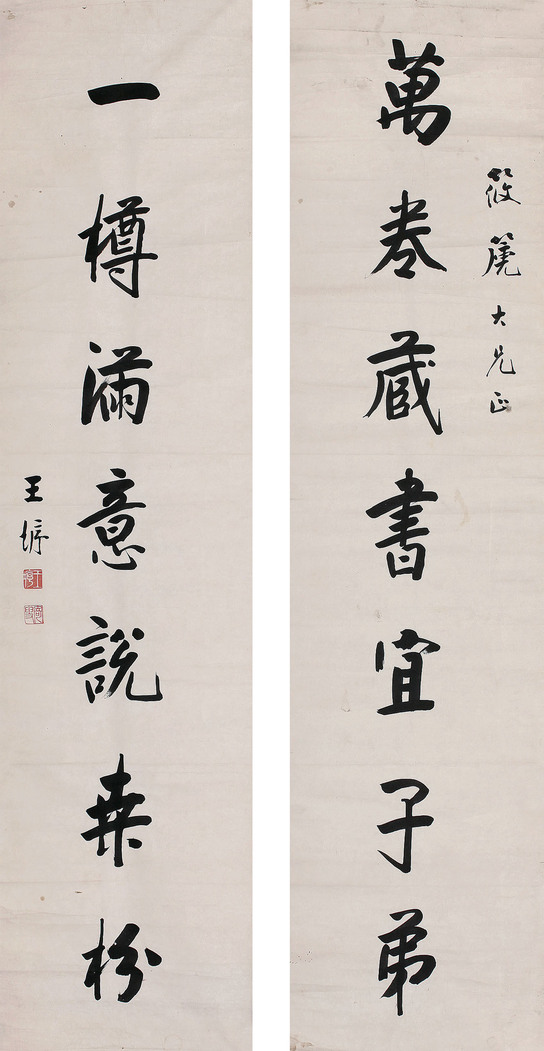 筱篪大兄正
萬卷藏書宜子弟
一樽滿意說桒枌
王垿